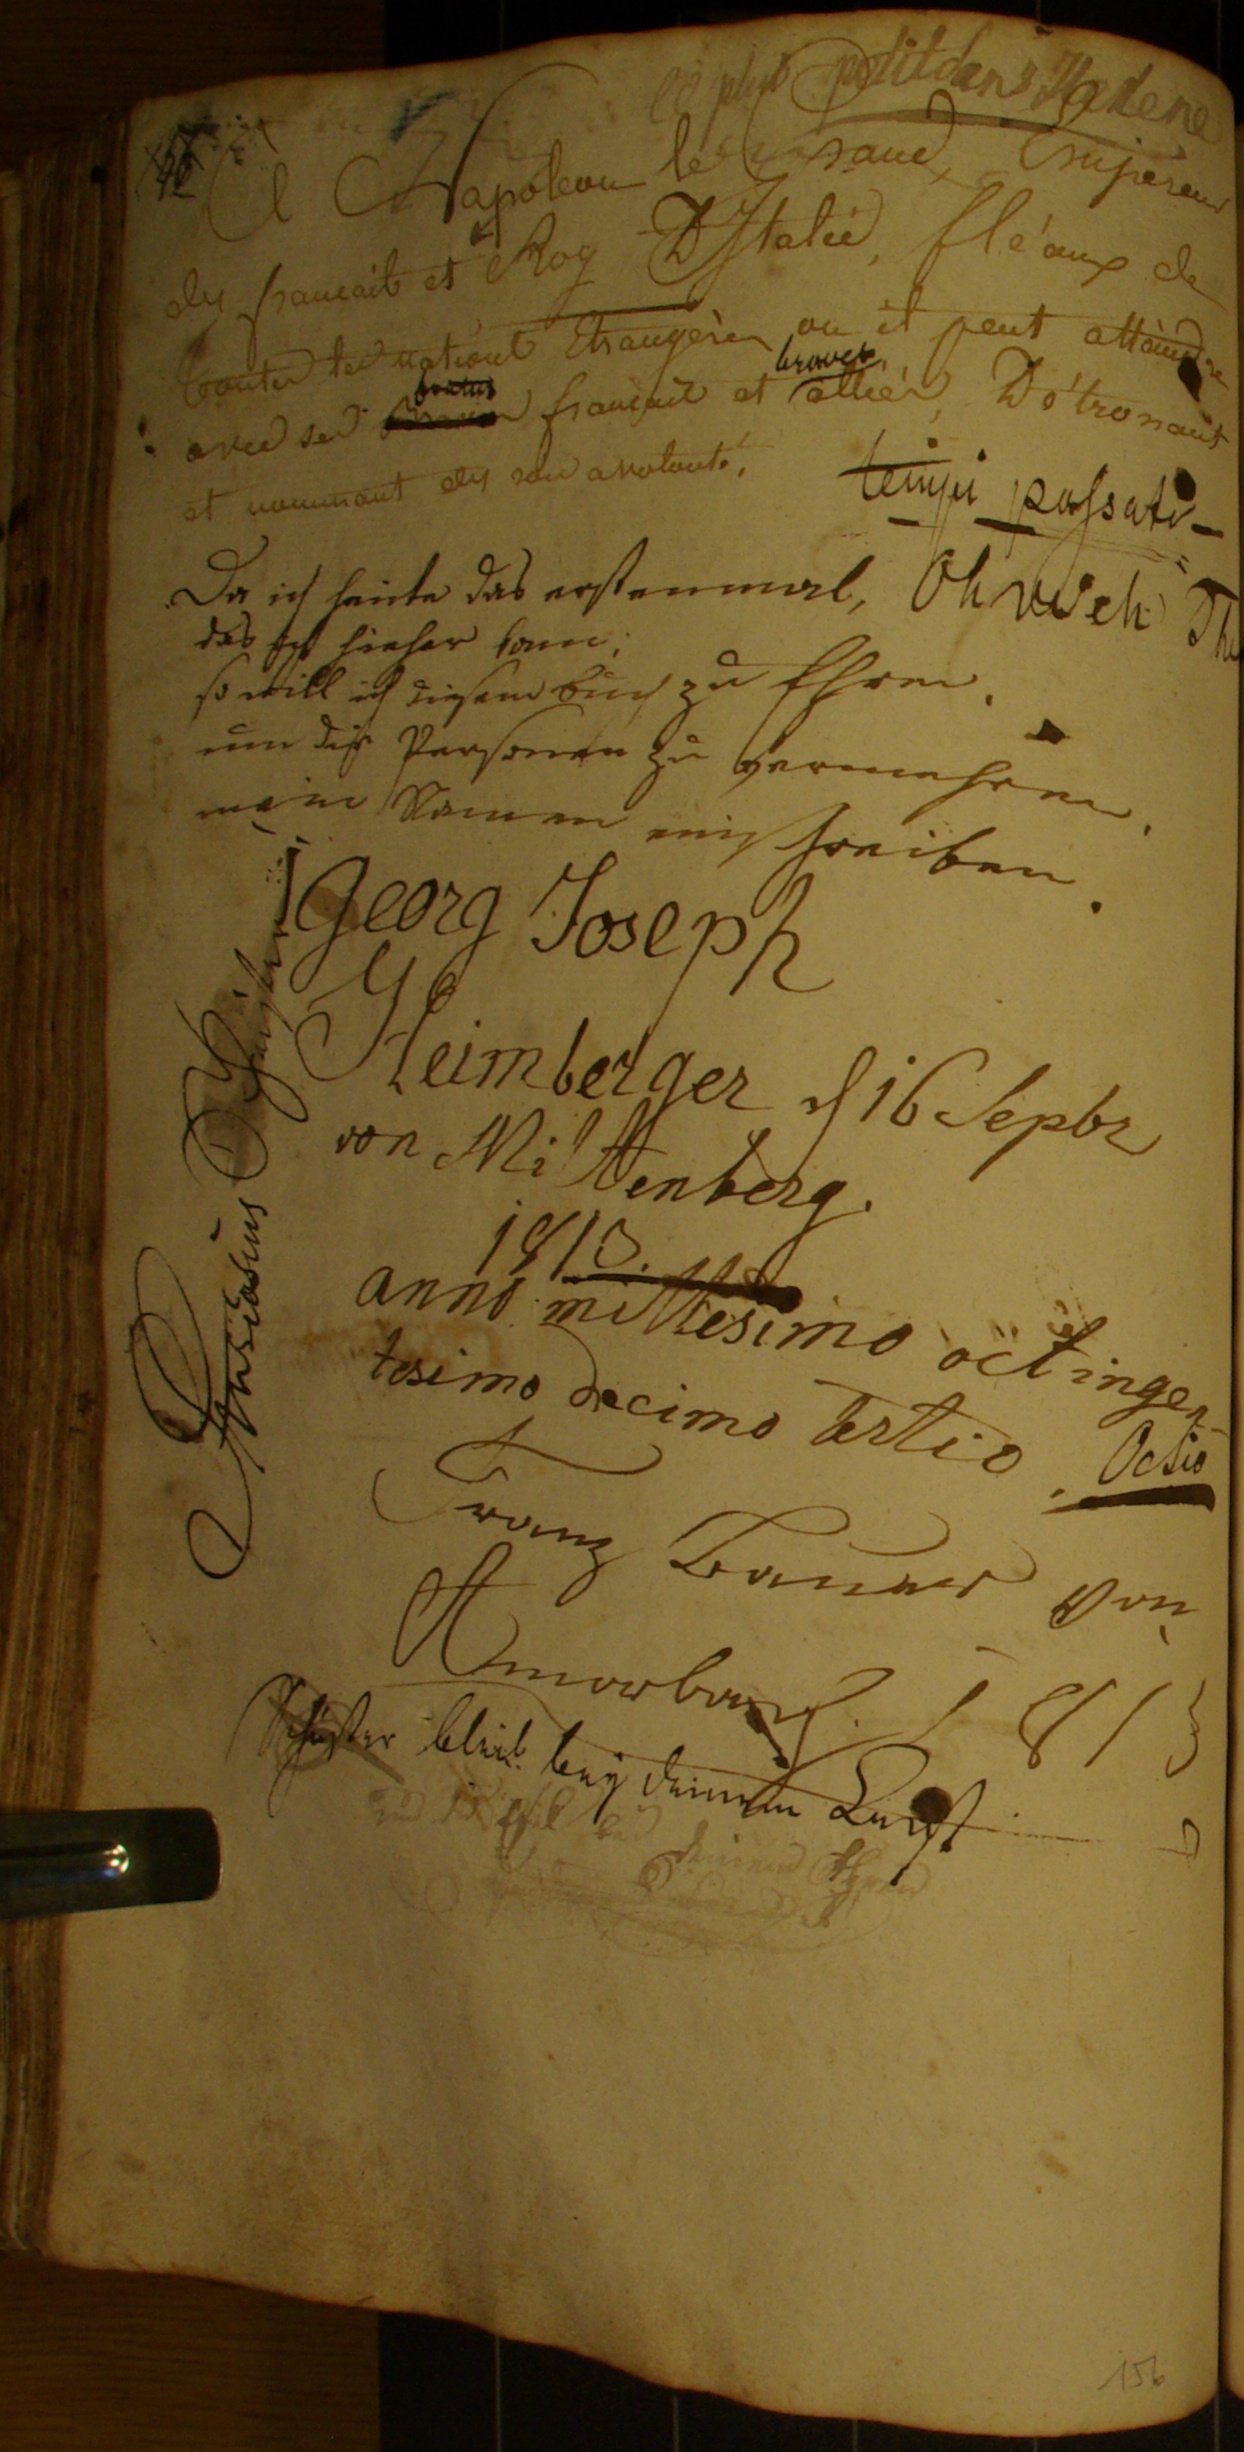 le plus petit dans
Napoleon le Grand, Empereur
des français et Roy D'Italie, fléaux de
toutes les nations Etrangères ou il peut attaindre
braves braves
avec ses français et alliés, Détronant
et nommant des son avolonté.
tempi passati
Da ich heute das erstenmal, Oh weh
das ich hieher kam;
so will ich diesem buch zu Ehren,
um die Personen zu vermehren,
mein Namen einschreiben.
Georg Joseph
Heimberger d 16 Sepbr
von Miltenberg.
1813.
anno millesimo octingen
tesimo decimo tertio. Octio
Franz Bauer von
Amorbach. 1813
Schuster bleib bey deinem Leist
deinem
156